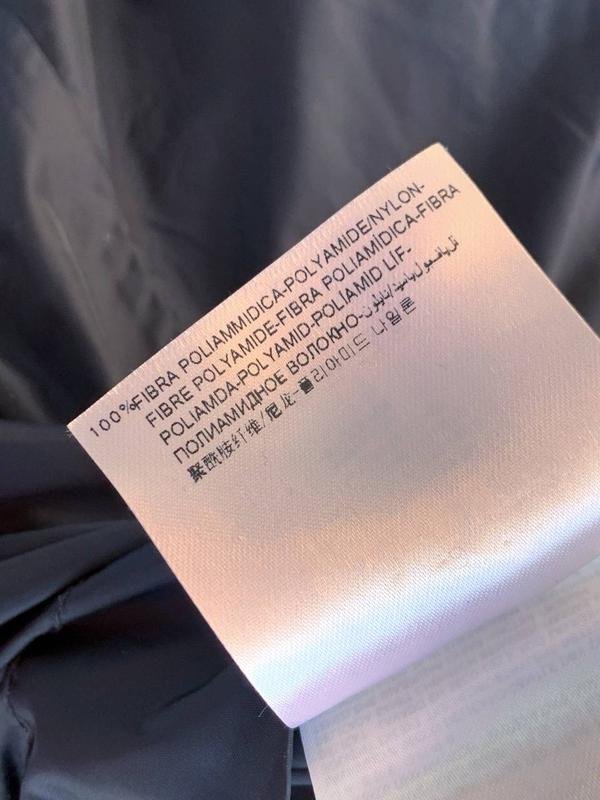 100%FIBRA POLIAMMIDICA-POLYAMIDE/NYLON-
FIBRE POLYAMIDE-FIBRA POLIAMÍDICA-FIBRA
POLIAMDA-POLYAMID-POLIAMID LIF-
ПОЛИАМИДНОЕ ВОЛОКНО-
聚酰胺纤维/尼龙-폴리아미드 나일론